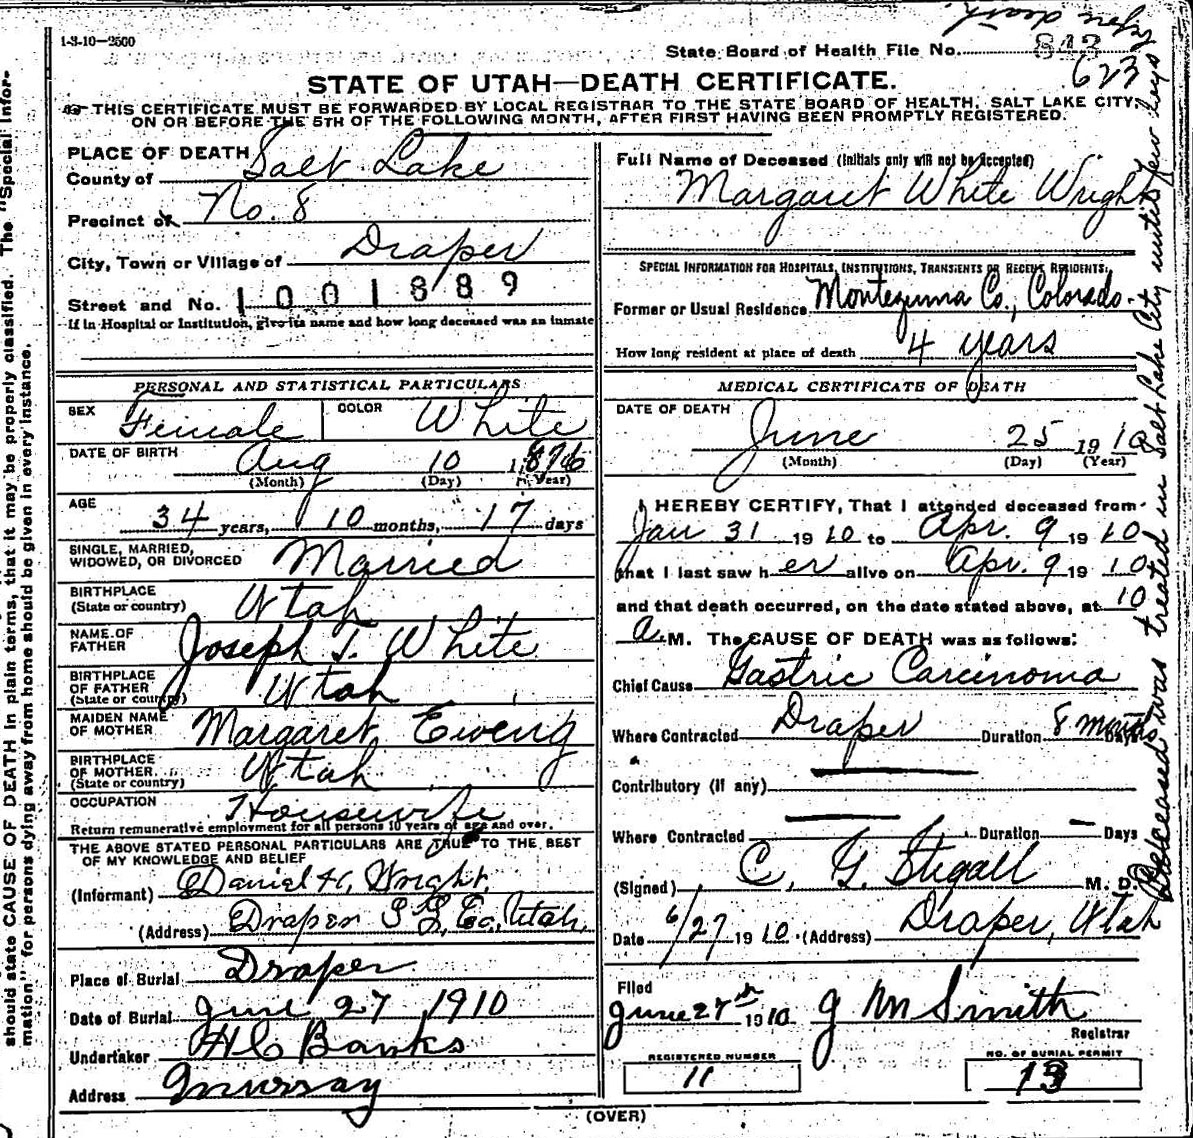 1-3-10-2500
State Board of Health File No. 843
623
STATE OF UTAH—DEATH CERTIFICATE.
THIS CERTIFICATE MUST BE FORWARDED BY LOCAL REGISTRAR TO THE STATE BOARD OF HEALTH, SALT LAKE CITY,
ON OR BEFORE THE 5TH OF THE FOLLOWING MONTH, AFTER FIRST HAVING BEEN PROMPTLY REGISTERED.
PLACE OF DEATH
County of Salt Lake
Precinct of No. 8
City, Town or Village of Draper
Street and No. 1001889
If in Hospital or Institution, give its name and how long deceased was an inmate
PERSONAL AND STATISTICAL PARTICULARS
SEX Female COLOR White
DATE OF BIRTH Aug 10 1876
(Month) (Day) (Year)
AGE 34 years, 10 months, 17 days
SINGLE, MARRIED,
WIDOWED, OR DIVORCED Married
BIRTHPLACE
(State or country) Utah
NAME OF
FATHER Joseph T. White
BIRTHPLACE
OF FATHER
(State or country) Utah
MAIDEN NAME
OF MOTHER Margaret Eweng
BIRTHPLACE
OF MOTHER
(State or country) Utah
OCCUPATION Housewife
Return remunerative employment for all persons 10 years of age and over.
THE ABOVE STATED PERSONAL PARTICULARS ARE TRUE TO THE BEST
OF MY KNOWLEDGE AND BELIEF
(Informant) Daniel H. Wright
(Address) Draper S L Co, Utah
Place of Burial Draper
Date of Burial June 27, 1910
Undertaker H C Banks
Address Murray
Full Name of Deceased (Initials only will not be accepted)
Margaret White Wright
SPECIAL INFORMATION FOR HOSPITALS, INSTITUTIONS, TRANSIENTS OR RECENT RESIDENTS.
Former or Usual Residence Montezuma Co., Colorado.
How long resident at place of death 4 years
MEDICAL CERTIFICATE OF DEATH
DATE OF DEATH June 25 1910
(Month) (Day) (Year)
I HEREBY CERTIFY, That I attended deceased from
Jan 31 1910 to Apr. 9 1910
that I last saw her alive on Apr. 9 1910
and that death occurred, on the date stated above, at 10
a.M. The CAUSE OF DEATH was as follows:
Chief Cause Gastric Carcinoma
Where Contracted Draper Duration 8 months Days
Contributory (if any)
Where Contracted — Duration — Days
(Signed) C. G. Stegall M. D.
Date 6/27 1910 (Address) Draper, Utah
Filed
June 27th 1910 J M Smith
Registrar
REGISTERED NUMBER
11
NO. OF BURIAL PERMIT
13
(OVER)
should state CAUSE OF DEATH in plain terms, that it may be properly classified. The "Special Infor-
mation" for persons dying away from home should be given in every instance.
Deceased was treated in Salt Lake City until few days
before death.